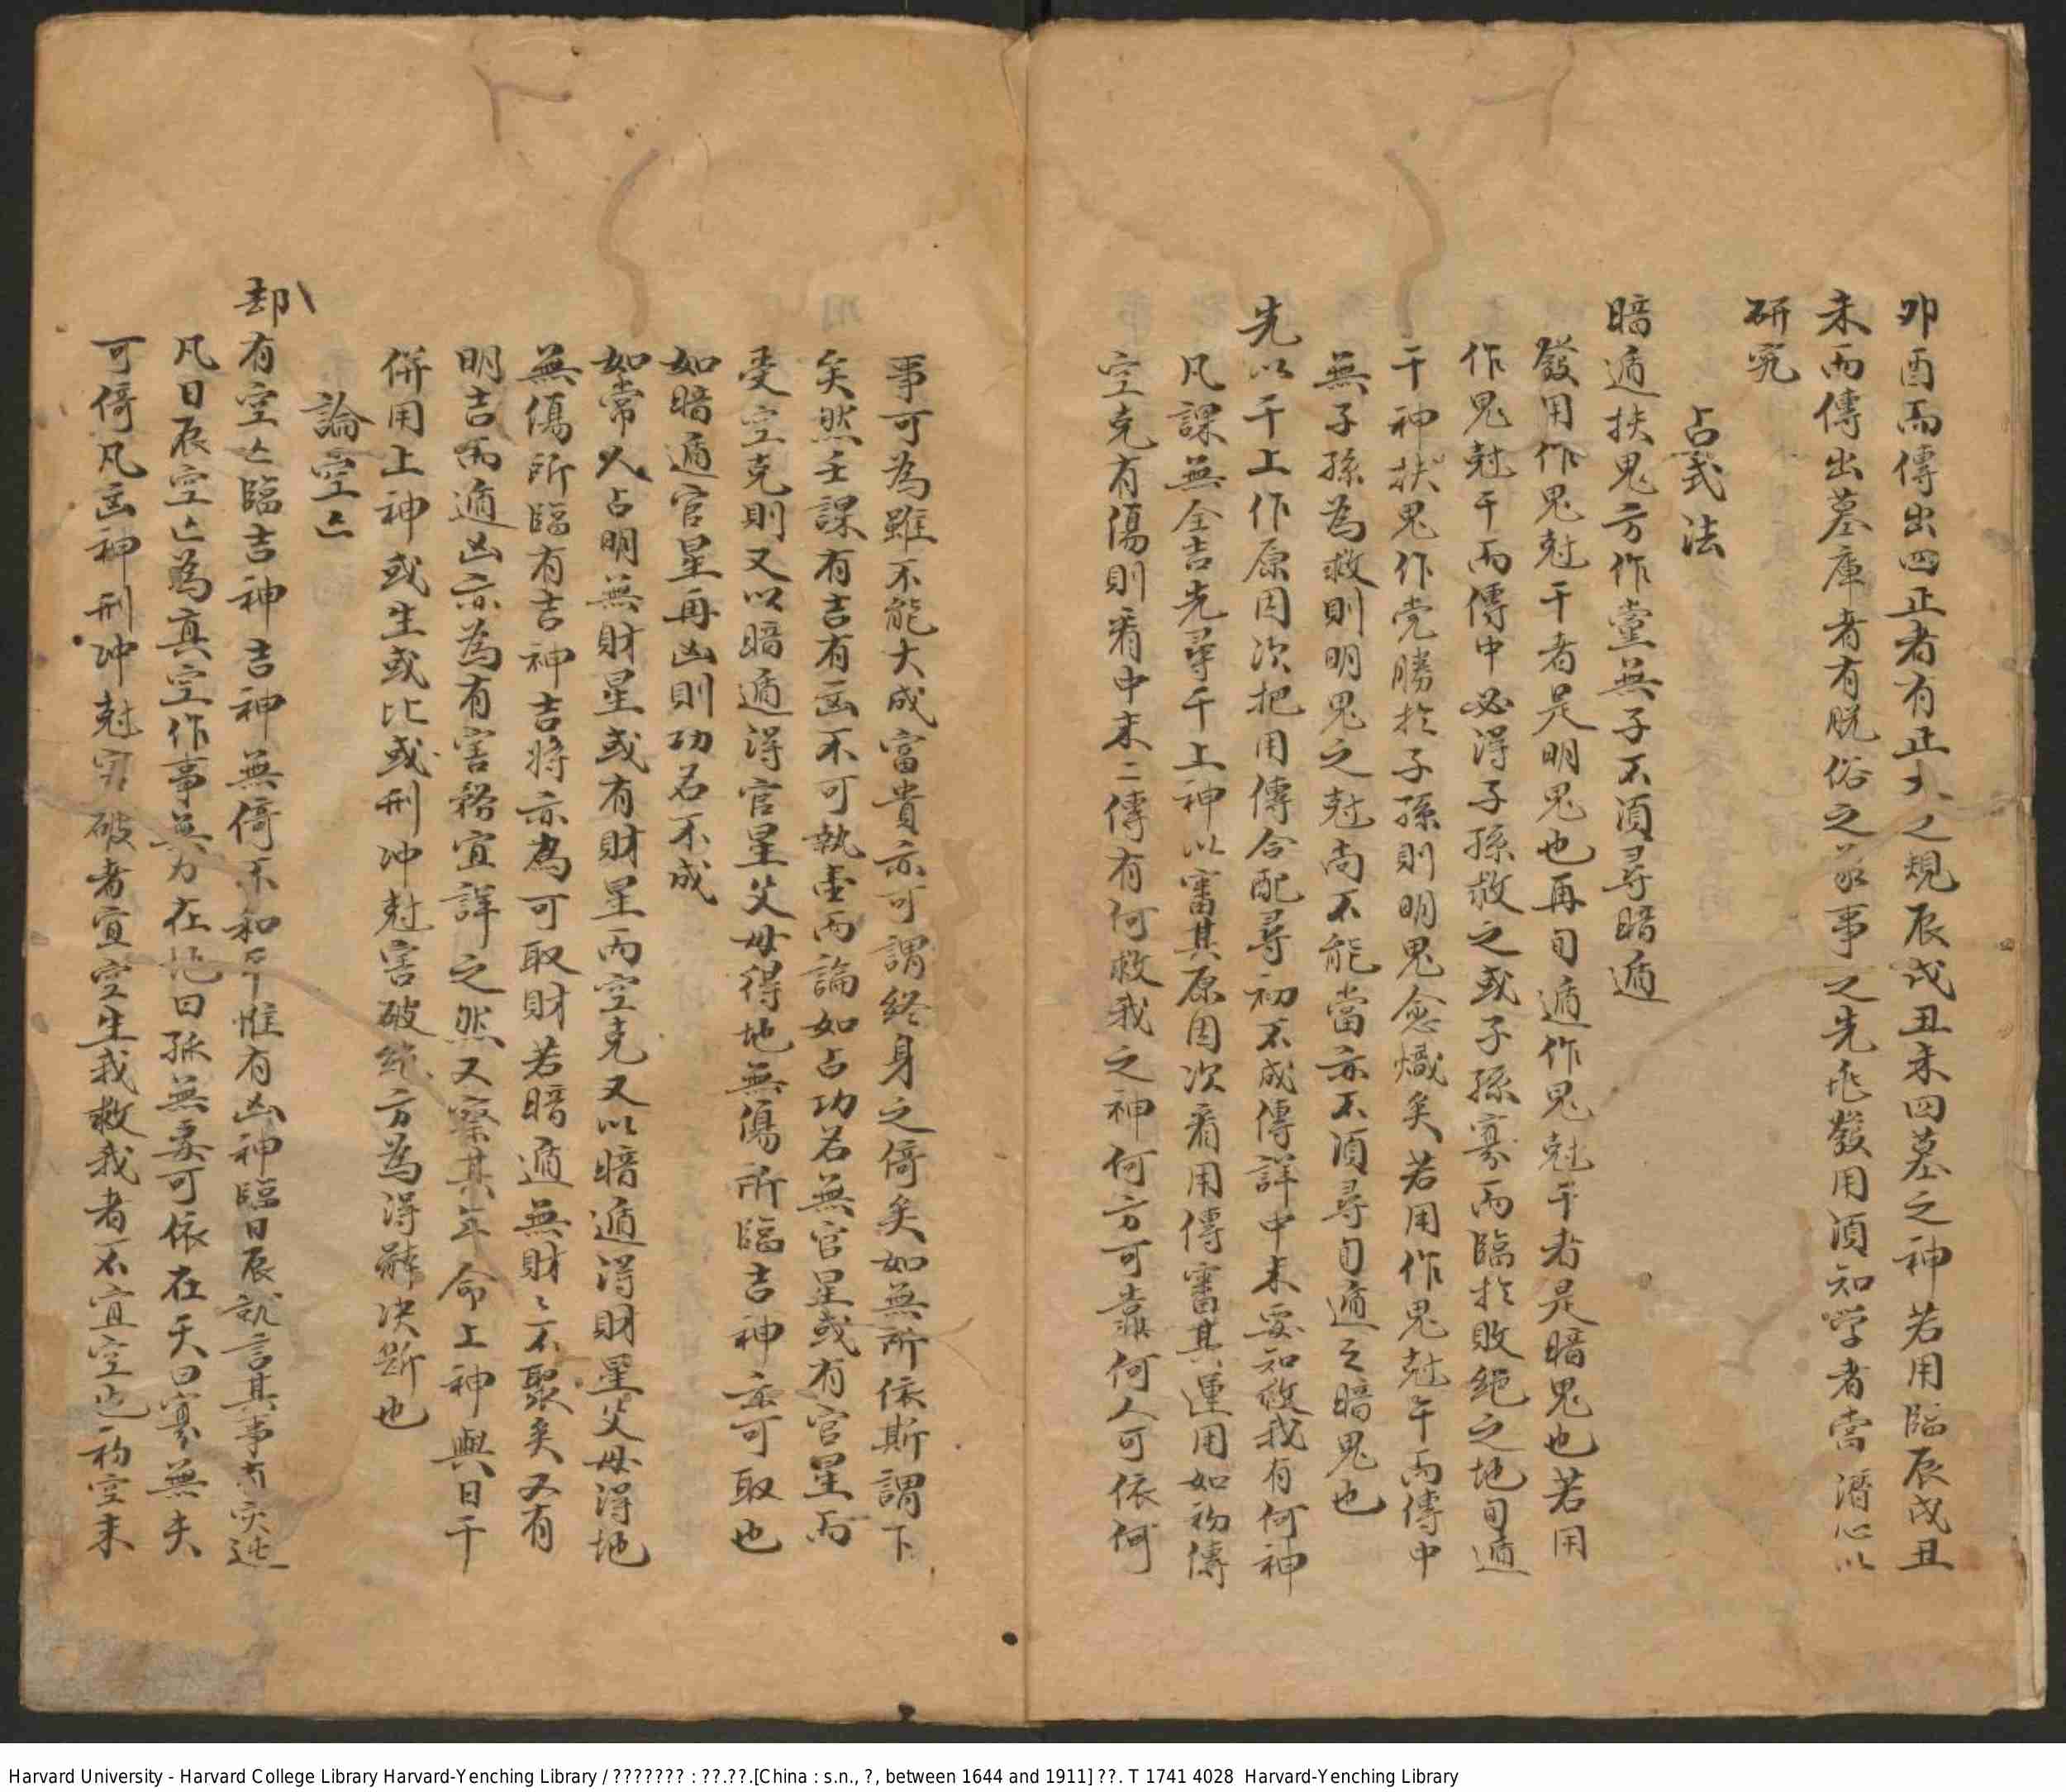 卯酉而傳出四正者有正大之規辰戌丑未四墓之神若用臨辰戌丑
未而傳出墓庫者有脱俗之家事之先兆發用須知学者當潛心以
研究
占式法
暗遁扶鬼方作黨無子不須尋暗遁
發用作鬼尅干者是明鬼也再旬遁作鬼尅干者是暗鬼也若用
作鬼尅干而傳中必得子孫救之或子孫寡而臨於敗絕之地旬遁
干神扶鬼作党勝於子孫則明鬼愈熾矣若用作鬼尅干而傳中
無子孫為救則明鬼之尅尚不能當亦不須尋旬遁之暗鬼也
先以干上作原因次把用傳合配尋初不成傳詳中末要知救我有何神
凡課無全吉先尋干上神以審其原因次看用傳審其運用如初傳
空克有傷則看中末二傳有何救我之神何方可靠何人可依何
事可為雖不能大成富貴亦可謂終身之倚矣如無所依斯謂下
矣然壬課有吉有凶不可執壹而論如占功名無官星或有官星而
受空克則又以暗遁得官星父母得地無傷所臨吉神亦可取也
如暗遁官星再凶則功名不成
如常人占明無財星或有財星而空克又以暗遁得財星父母得地
無傷所臨有吉神吉將亦為可取財若暗遁無財々不聚矣又有
明吉而遁凶亦為有害務宜詳之然又察其年命上神與日干
併用上神或生或比或刑冲尅害破絕方為得訣决断也
論空亡
却有空亡臨吉神吉神無倚不和平惟有凶神臨日辰就言其事有灾迍
凡日辰空亡為真空作事無力在地曰孤無妻可依在天曰寡無夫
可倚凡凶神刑冲尅害破者宜空生我救我者不宜空也初空末
Harvard University - Harvard College Library Harvard-Yenching Library / ??????? : ??.??.[China : s.n., ?, between 1644 and 1911] ??. T 1741 4028 Harvard-Yenching Library